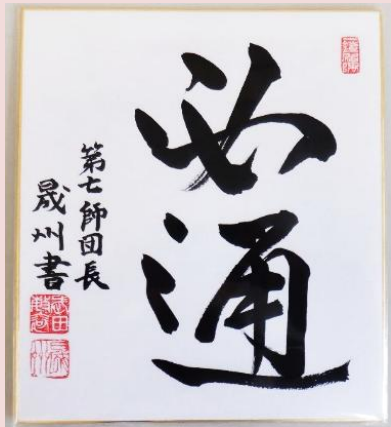 必通
第七師団長
晟州書